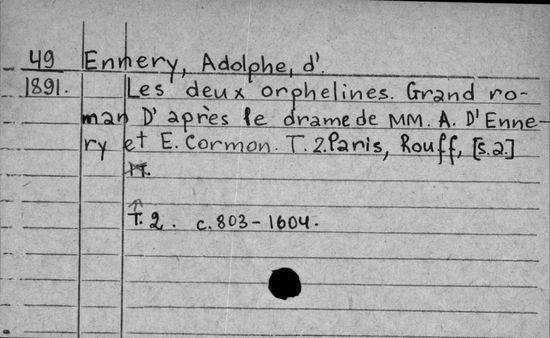 49 Ennery, Adolphe, d'.
1891. Les deux orphelines. Grand ro-
man D'après le drame de MM. A. D'Enne-
ry et E. Cormon. T. 2. Paris, Rouff, [s.a.]
T. 2. c. 803-1604.